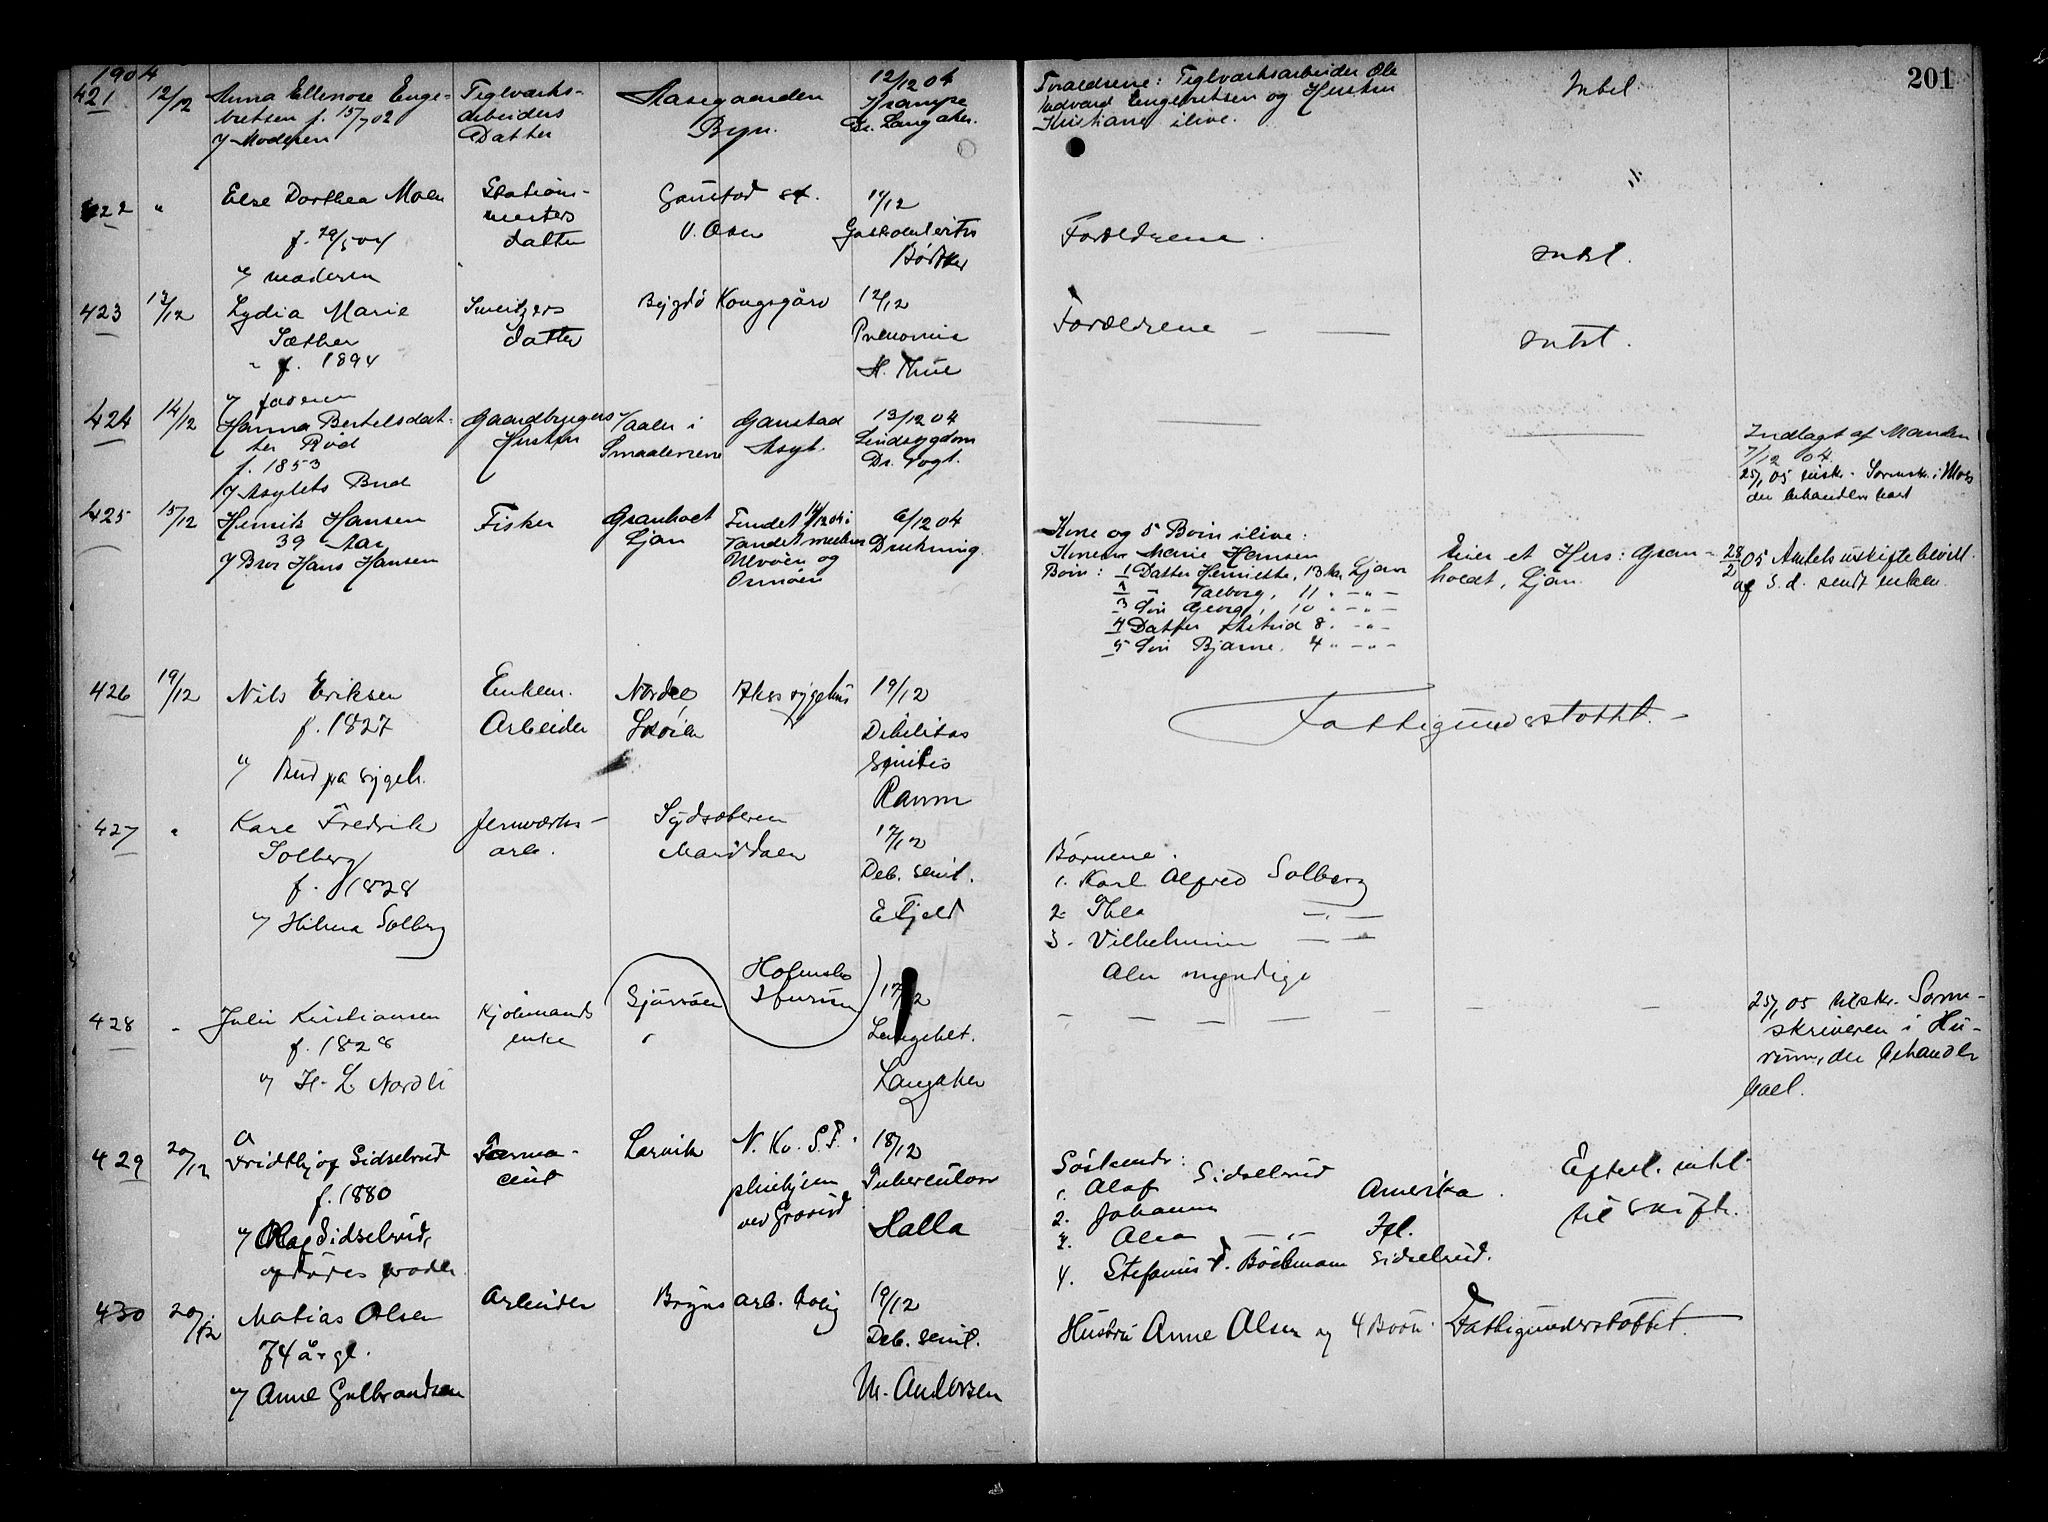 1904
201
421 12/12 Anna Ellenore Enge-
bretsen f. 15/7 02
v/ Moderen
Teglværks-
arbeiders
Datter
Bryn.
12/12 04
Krampe
Dr. Langaker.
Forældrene: Teglværksarbeider Ole
Edvard Engebretsen og Hustru
Kristiane ilive.
Intet.
422 " Else Dorthea Moen
f. 29/5 04
v/ moderen
Stations-
mesters
datter
Ganstad st.
V. Aker
11/12
Bødtker
Forældrene.
Intet.
423 13/12 Lydia Marie
Sæther
f. 1894
v/ faderen
Sveitzers
datter
Bygdø Kongsgård
12/12
Pneumonie
H. Thue
Forældrene — —
Intet.
424 14/12 Hanna Bertelsdat-
ter Rød
f. 1853
v/ Asylets Bud
Gaardbrugers
Hustru
Vaaler i
Smaalenene
Gaustad
Asyl.
13/12 04
Sindsygdom
Dr. Vogt.
Indlagt af Manden
7/12 04.
25/1 05 tilskr. Sorenskr. i Moss
der behandler boet
425 15/12 Henrik Hansen
39 Aar
v/ Bror Hans Hansen
Fisker
Granholt
Ljan
Fundet 14/12 04 i
Vandet mellem
Ulvøen og
Ormøen
6/12 04
Drukning.
Kone og 5 Børn ilive:
Konen Marie Hansen
Børn: 1 Datter Henriette, 13 Aar, Ljan
2 — " Valborg, 11 " — " —
3 Søn Georg, 10 " — " —
4 Datter Astrid 8. — " —
5 Søn Bjarne, 4 " — " —
Eier et Hus: Gran-
holdt, Ljan.
28/2 05 Amtets uskiftebevill.
af S. d. sendt enken.
426 19/12 Nils Eriksen
f. 1827
v/ Bud fra sygeh.
Enkem.
Arbeider
Nordre
Akers sygehus
19/12
Debilitas
senilis
Ravn
Fattigunderstøttet. —
427 " Kare Fredrik
Solberg
f. 1828
v/ Hilma Solberg
Jernværks-
arb.
Maridalen
17/12
Deb. senil.
E Fjeld
Børnene.
1. Karl Alfred Solberg
2. Thea — " —
3. Vilhelmine — " —
Alle myndige
428 " Julie Kristiansen
f. 1828
v/ H. L. Nordli
enke
Holmsbo
Hurum
17/12
Langaker
— — — — —
25/1 05 tilskr. Soren-
skriveren i Hu-
rum, der behandler
boet.
429 20/12 Fridthjof Sidselrud
f. 1880
v/ Olaf Sidselrud,
Farma-
ceut
Larvik
N. Kv. S. F.
pleiehjem
ved Grorud
18/12
Tuberculose
Halla
Søskende:
1. Olaf Sidselrud
2. Johanne Amerika.
3. Olea — " — Ifl.
4. Stefanus f. Böckmann Sidselrud.
Efterl. intet
til skifte.
430 20/12 Matias Olsen
74 år gl.
v/ Anne Gulbrandsen
Arbeider
Bryns arb. bolig
19/12
Deb. senil.
M. Andersen
Hustru Anne Olsen og 4 Børn.
Fattigunderstøttet.